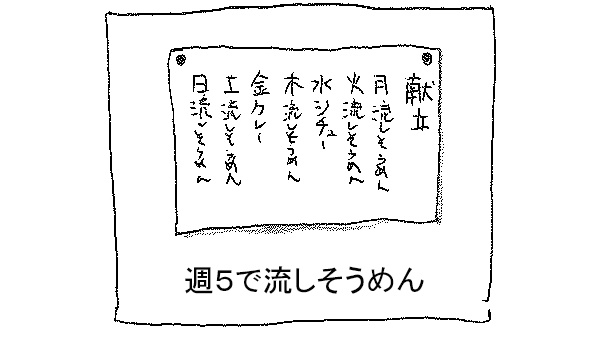 献立
月流しそうめん
火流しそうめん
水シチュー
木流しそうめん
金カレー
土流しそうめん
日流しそうめん
週5で流しそうめん